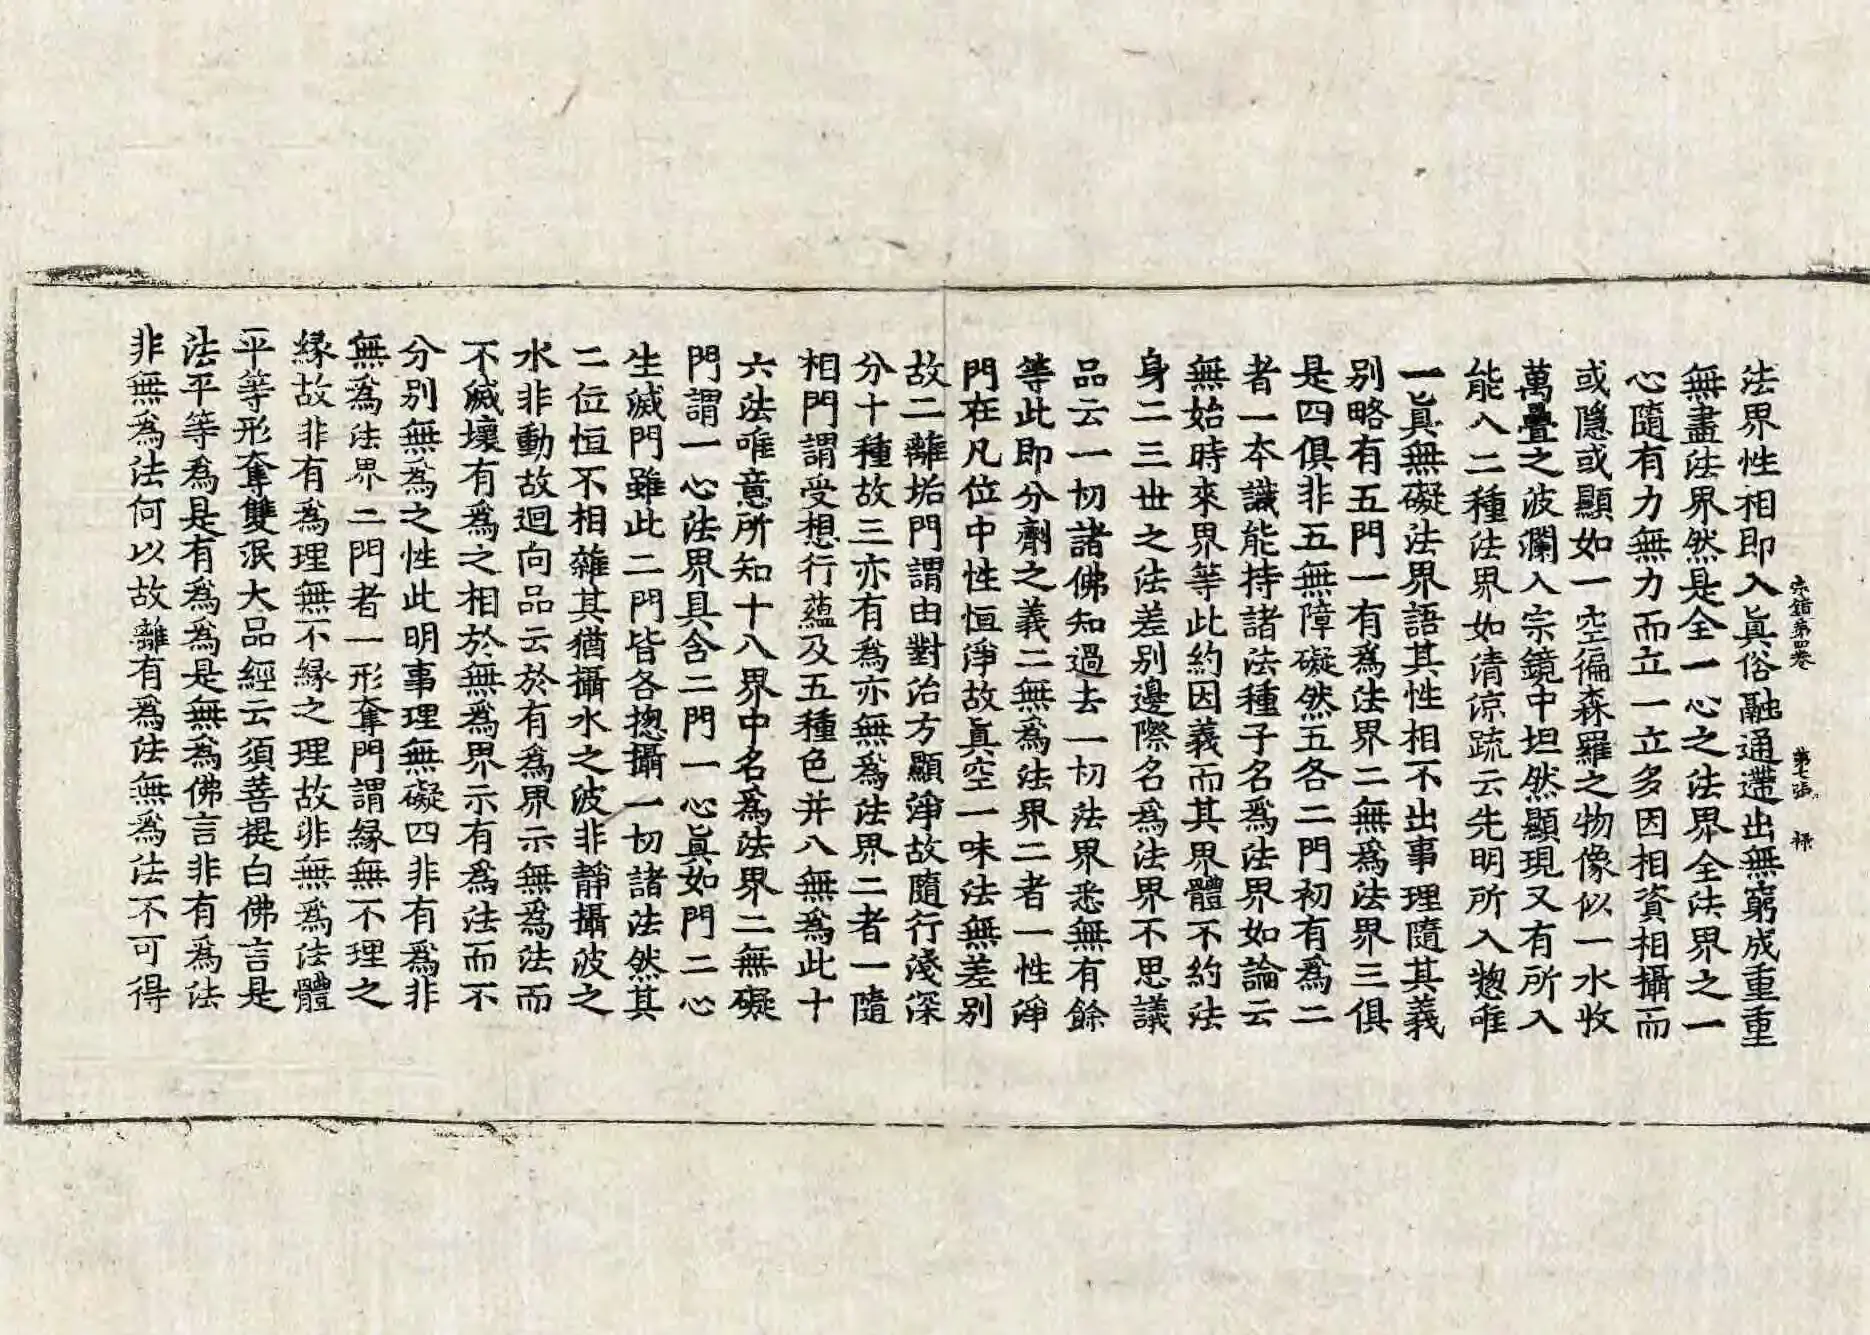 法界性相即入眞俗融通遞出無窮成重重
無盡法界然是全一心之法界全法界之一
心隨有力無力而立一立多因相資相攝而
或隱或顯如一空徧森羅之物像似一水收
萬疊之波瀾入宗鏡中坦然顯現又有所入
能入二種法界如清涼䟽云先明所入揔唯
一眞無礙法界語其性相不出事理隨其義
別略有五門一有爲法界二無爲法界三俱
是四俱非五無障礙然五各二門初有爲二
者一本識能持諸法種子名爲法界如論云
無始時來界等此約因義而其界體不約法
身二三世之法差別邊際名爲法界不思議
品云一切諸佛知過去一切法界悉無有餘
等此即分劑之義二無爲法界二者一性淨
門在凡位中性恒淨故眞空一味法無差別
故二離垢門謂由對治方顯淨故隨行淺深
分十種故三亦有爲亦無爲法界二者一隨
相門謂受想行蘊及五種色并八無爲此十
六法唯意所知十八界中名爲法界二無礙
門謂一心法界具含二門一心眞如門二心
生滅門雖此二門皆各揔攝一切諸法然其
二位恒不相雜其猶攝水之波非靜攝波之
水非動故迴向品云於有爲界示無爲法而
不滅壞有爲之相於無爲界示有爲法而不
分別無爲之性此明事理無礙四非有爲非
無爲法界二門者一形奪門謂緣無不理之
緣故非有爲理無不緣之理故非無爲法體
平等形奪雙泯大品經云須菩提白佛言是
法平等爲是有爲爲是無爲佛言非有爲法
非無爲法何以故離有爲法無爲法不可得
宗鏡第四卷 第七張 祿